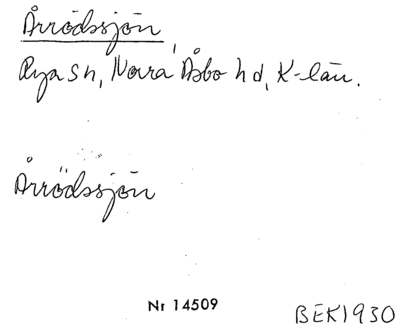 Årrödssjön
Rya sn, Norra Åsbo hd, K-län.
Årrödssjön
Nr 14509
BEK1930